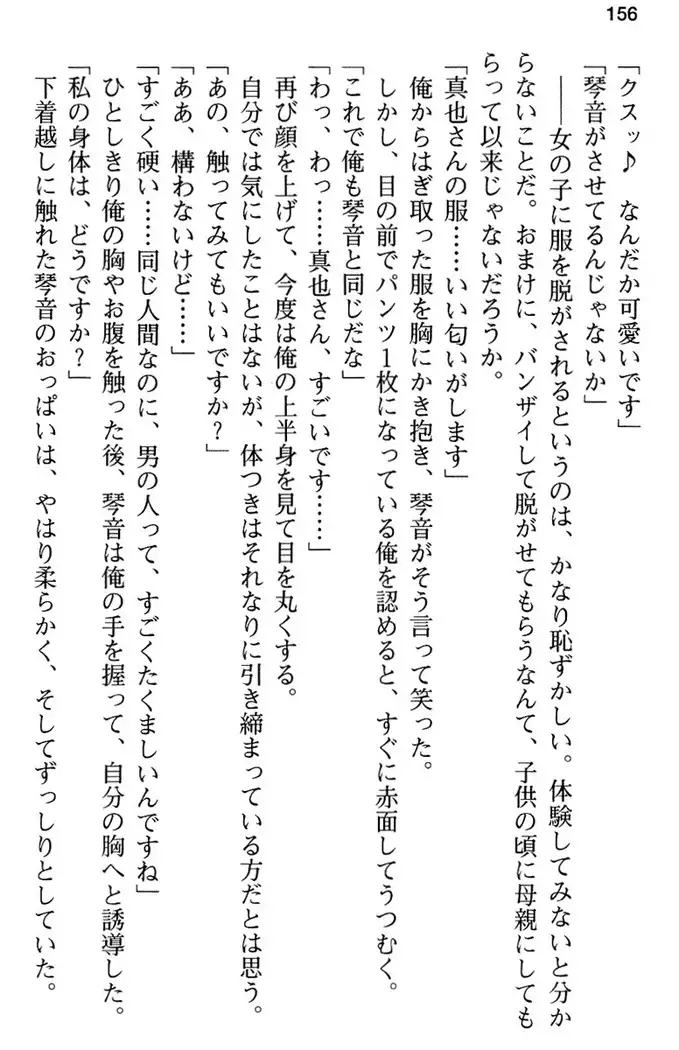 156
「クスッ♪　なんだか可愛いです」
「琴音がさせてるんじゃないか」
――女の子に服を脱がされるというのは、かなり恥ずかしい。体験してみないと分か
らないことだ。おまけに、バンザイして脱がせてもらうなんて、子供の頃に母親にしても
らって以来じゃないだろうか。
「真也さんの服……いい匂いがします」
俺からはぎ取った服を胸にかき抱き、琴音がそう言って笑った。
しかし、目の前でパンツ１枚になっている俺を認めると、すぐに赤面してうつむく。
「これで俺も琴音と同じだな」
「わっ、わっ……真也さん、すごいです……」
再び顔を上げて、今度は俺の上半身を見て目を丸くする。
自分では気にしたことはないが、体つきはそれなりに引き締まっている方だとは思う。
「あの、触ってみてもいいですか？」
「ああ、構わないけど……」
「すごく硬い……同じ人間なのに、男の人って、すごくたくましいんですね」
ひとしきり俺の胸やお腹を触った後、琴音は俺の手を握って、自分の胸へと誘導した。
「私の身体は、どうですか？」
下着越しに触れた琴音のおっぱいは、やはり柔らかく、そしてずっしりとしていた。